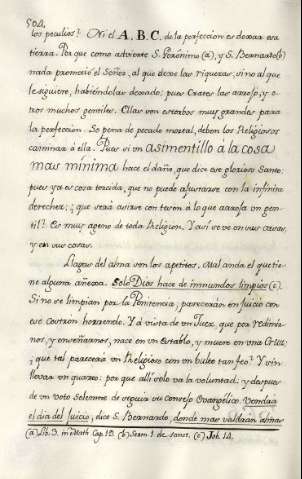 504.
los peculios? Ni el A, B, C. de la perfeccion es dexar esa
tierra. Porque como advierte S. Geronimo (a), y S. Bernardo (b)
nada prometió el Señor, al que dexe las riquezas, sino al que
le siguiere, habiendolas dexado; pues Crates las arrojó, y
otros muchos gentiles. Ellas son estorbos muy grandes para
la perfeccion. So pena de pecado mortal, deben los Religiosos
caminar a ella. Pues si un asimentillo á la cosa
mas minima hace el daño, que dice ese glorioso Santo;
pues ya es cosa torcida, que no puede ajustarse con la infinita
derechez; que será asirse con teson á lo que arroja un gen-
til? Es muy ageno de toda Religion. Y asi se ve en sus casas,
y en sus cosas.
Llagas del alma son los apetitos. Mal anda el que tie-
ne alguna añexa. Solo Dios hace de inmundos limpios (c).
Si no se limpian por la Penitencia, parecerán en Juicio con
ese costron horrendo. Y á vista de un Juez, que por redimir-
nos, y enseñarnos, nace en un Establo, y muere en una Cruz;
que tal parecerá un Religioso con un bulto tan feo? Y sin
llevar un quarto: por que alli solo va la voluntad. y despues
de un Voto Solemne de seguir su Consejo Evangelico. Vendrá
el dia del Juicio, dice S. Bernardo, donde mas valdrán almas
(a) Lib. 3. in Math. Cap. 19. (b) Serm. 1. de Sanct. (c) Job. 14.